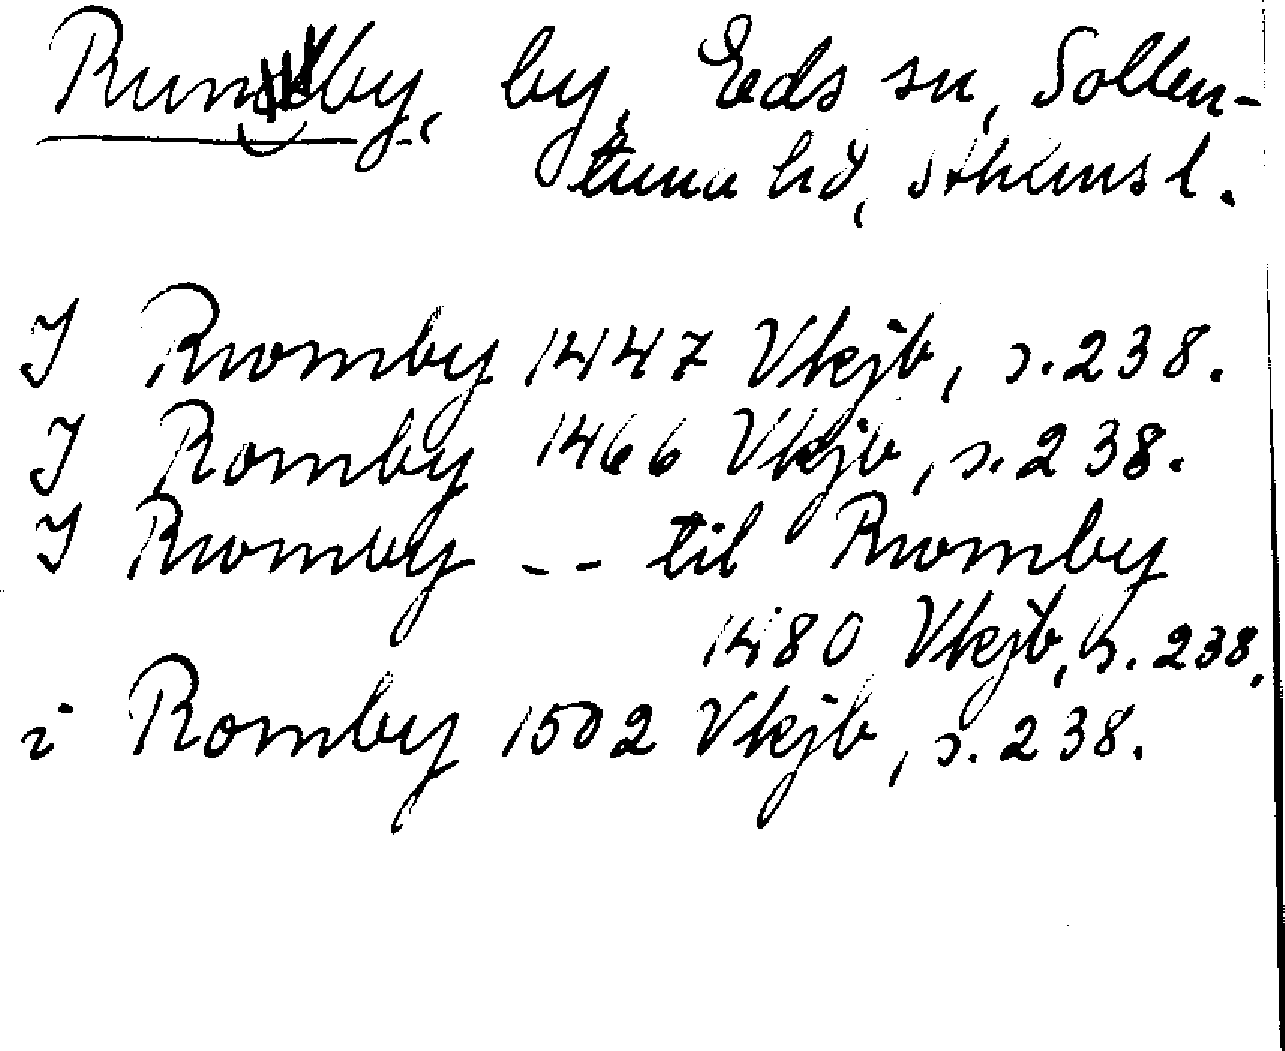 Runby, by, Eds sn, Sollen-
tuna hd, Sthlms l.
I Rwomby 1447 Vkjb, s. 238.
I Romby 1466 Vkjb, s. 238.
I Rwomby -- til Rwomby
1480 Vkjb, s. 238.
i Romby 1502 Vkjb, s. 238.